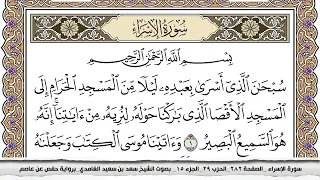 سُورَةُ الْإِسْرَاءِ
بِسْمِ ٱللَّهِ ٱلرَّحْمَٰنِ ٱلرَّحِيمِ
سُبْحَٰنَ ٱلَّذِىٓ أَسْرَىٰ بِعَبْدِهِۦ لَيْلًا مِّنَ ٱلْمَسْجِدِ ٱلْحَرَامِ إِلَى
ٱلْمَسْجِدِ ٱلْأَقْصَا ٱلَّذِى بَٰرَكْنَا حَوْلَهُۥ لِنُرِيَهُۥ مِنْ ءَايَٰتِنَآ ۚ إِنَّهُۥ
هُوَ ٱلسَّمِيعُ ٱلْبَصِيرُ ١ وَءَاتَيْنَا مُوسَى ٱلْكِتَٰبَ وَجَعَلْنَٰهُ
سورة الإسراء . الصفحة ٢٨٢ . الحزب ٢٩ . الجزء ١٥ . بصوت الشيخ سعد بن سعيد الغامدي . برواية حفص عن عاصم